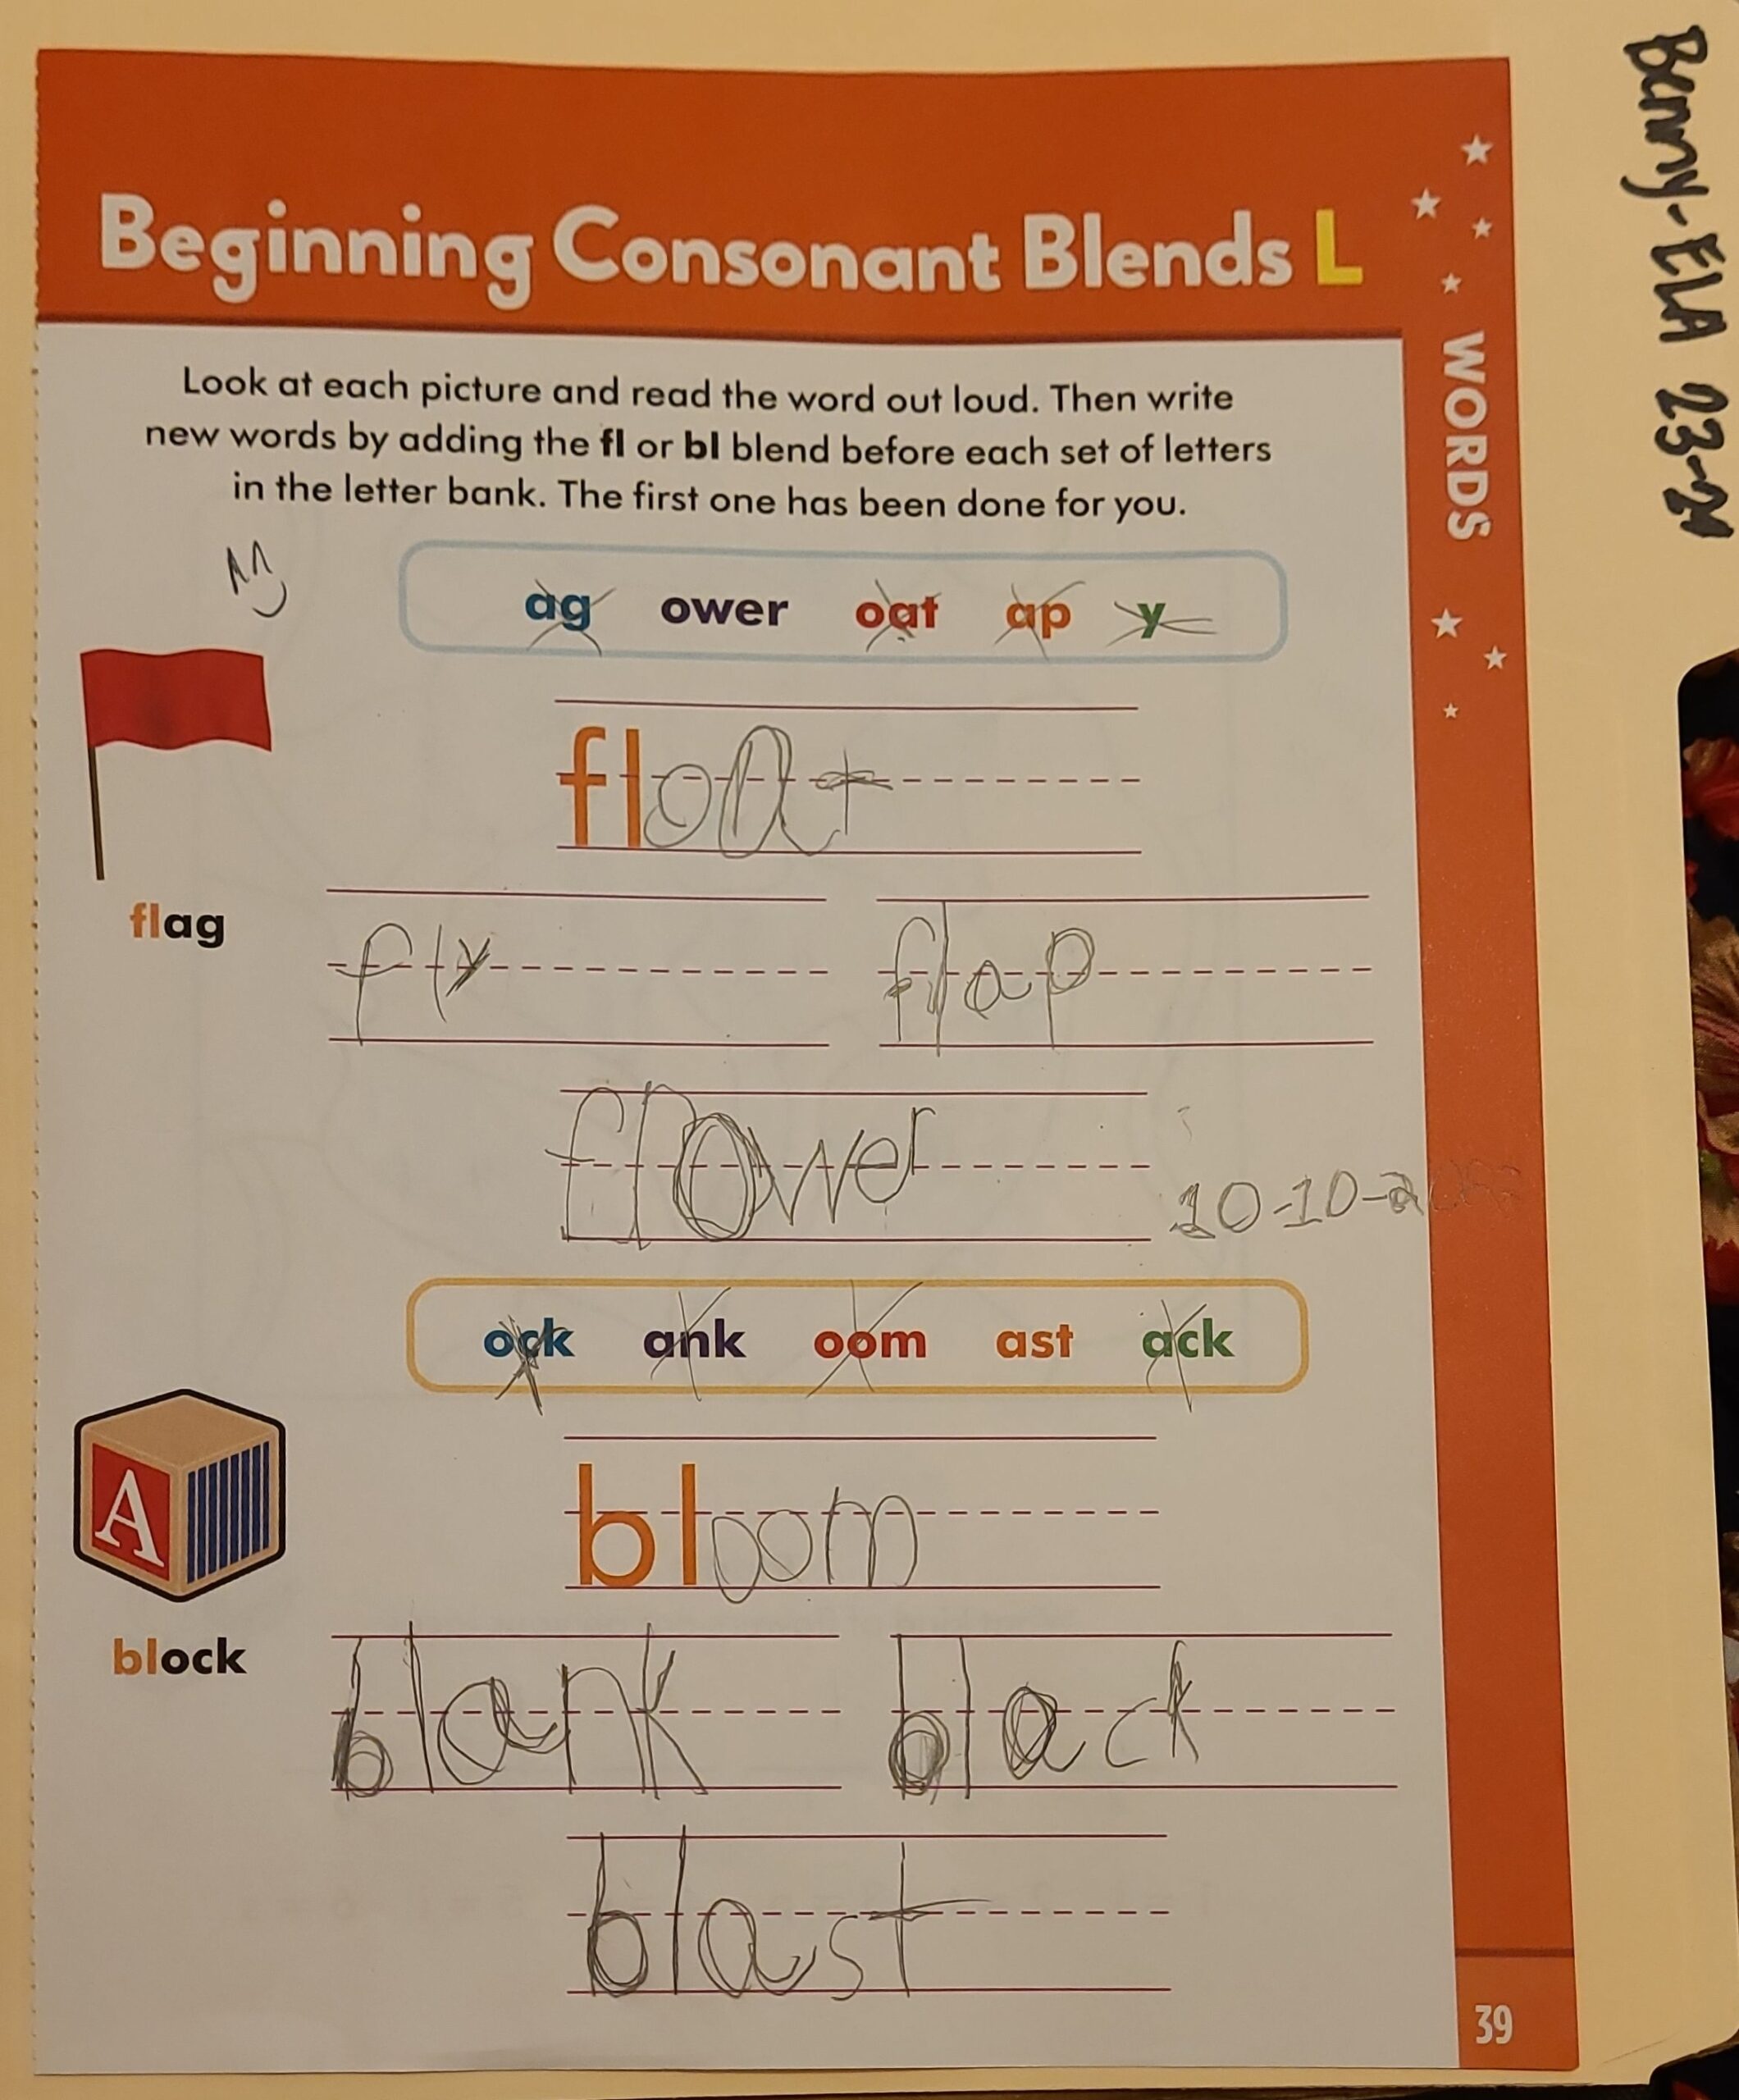 Beginning Consonant Blends L
Look at each picture and read the word out loud. Then write
new words by adding the fl or bl blend before each set of letters
in the letter bank. The first one has been done for you.
ag ower oat ap y
float
flag
fly flap
flower
10-10-2
ock ank oom ast ack
A
bloom
block
blank black
blast
WORDS
39
Benny-ELA 23-24